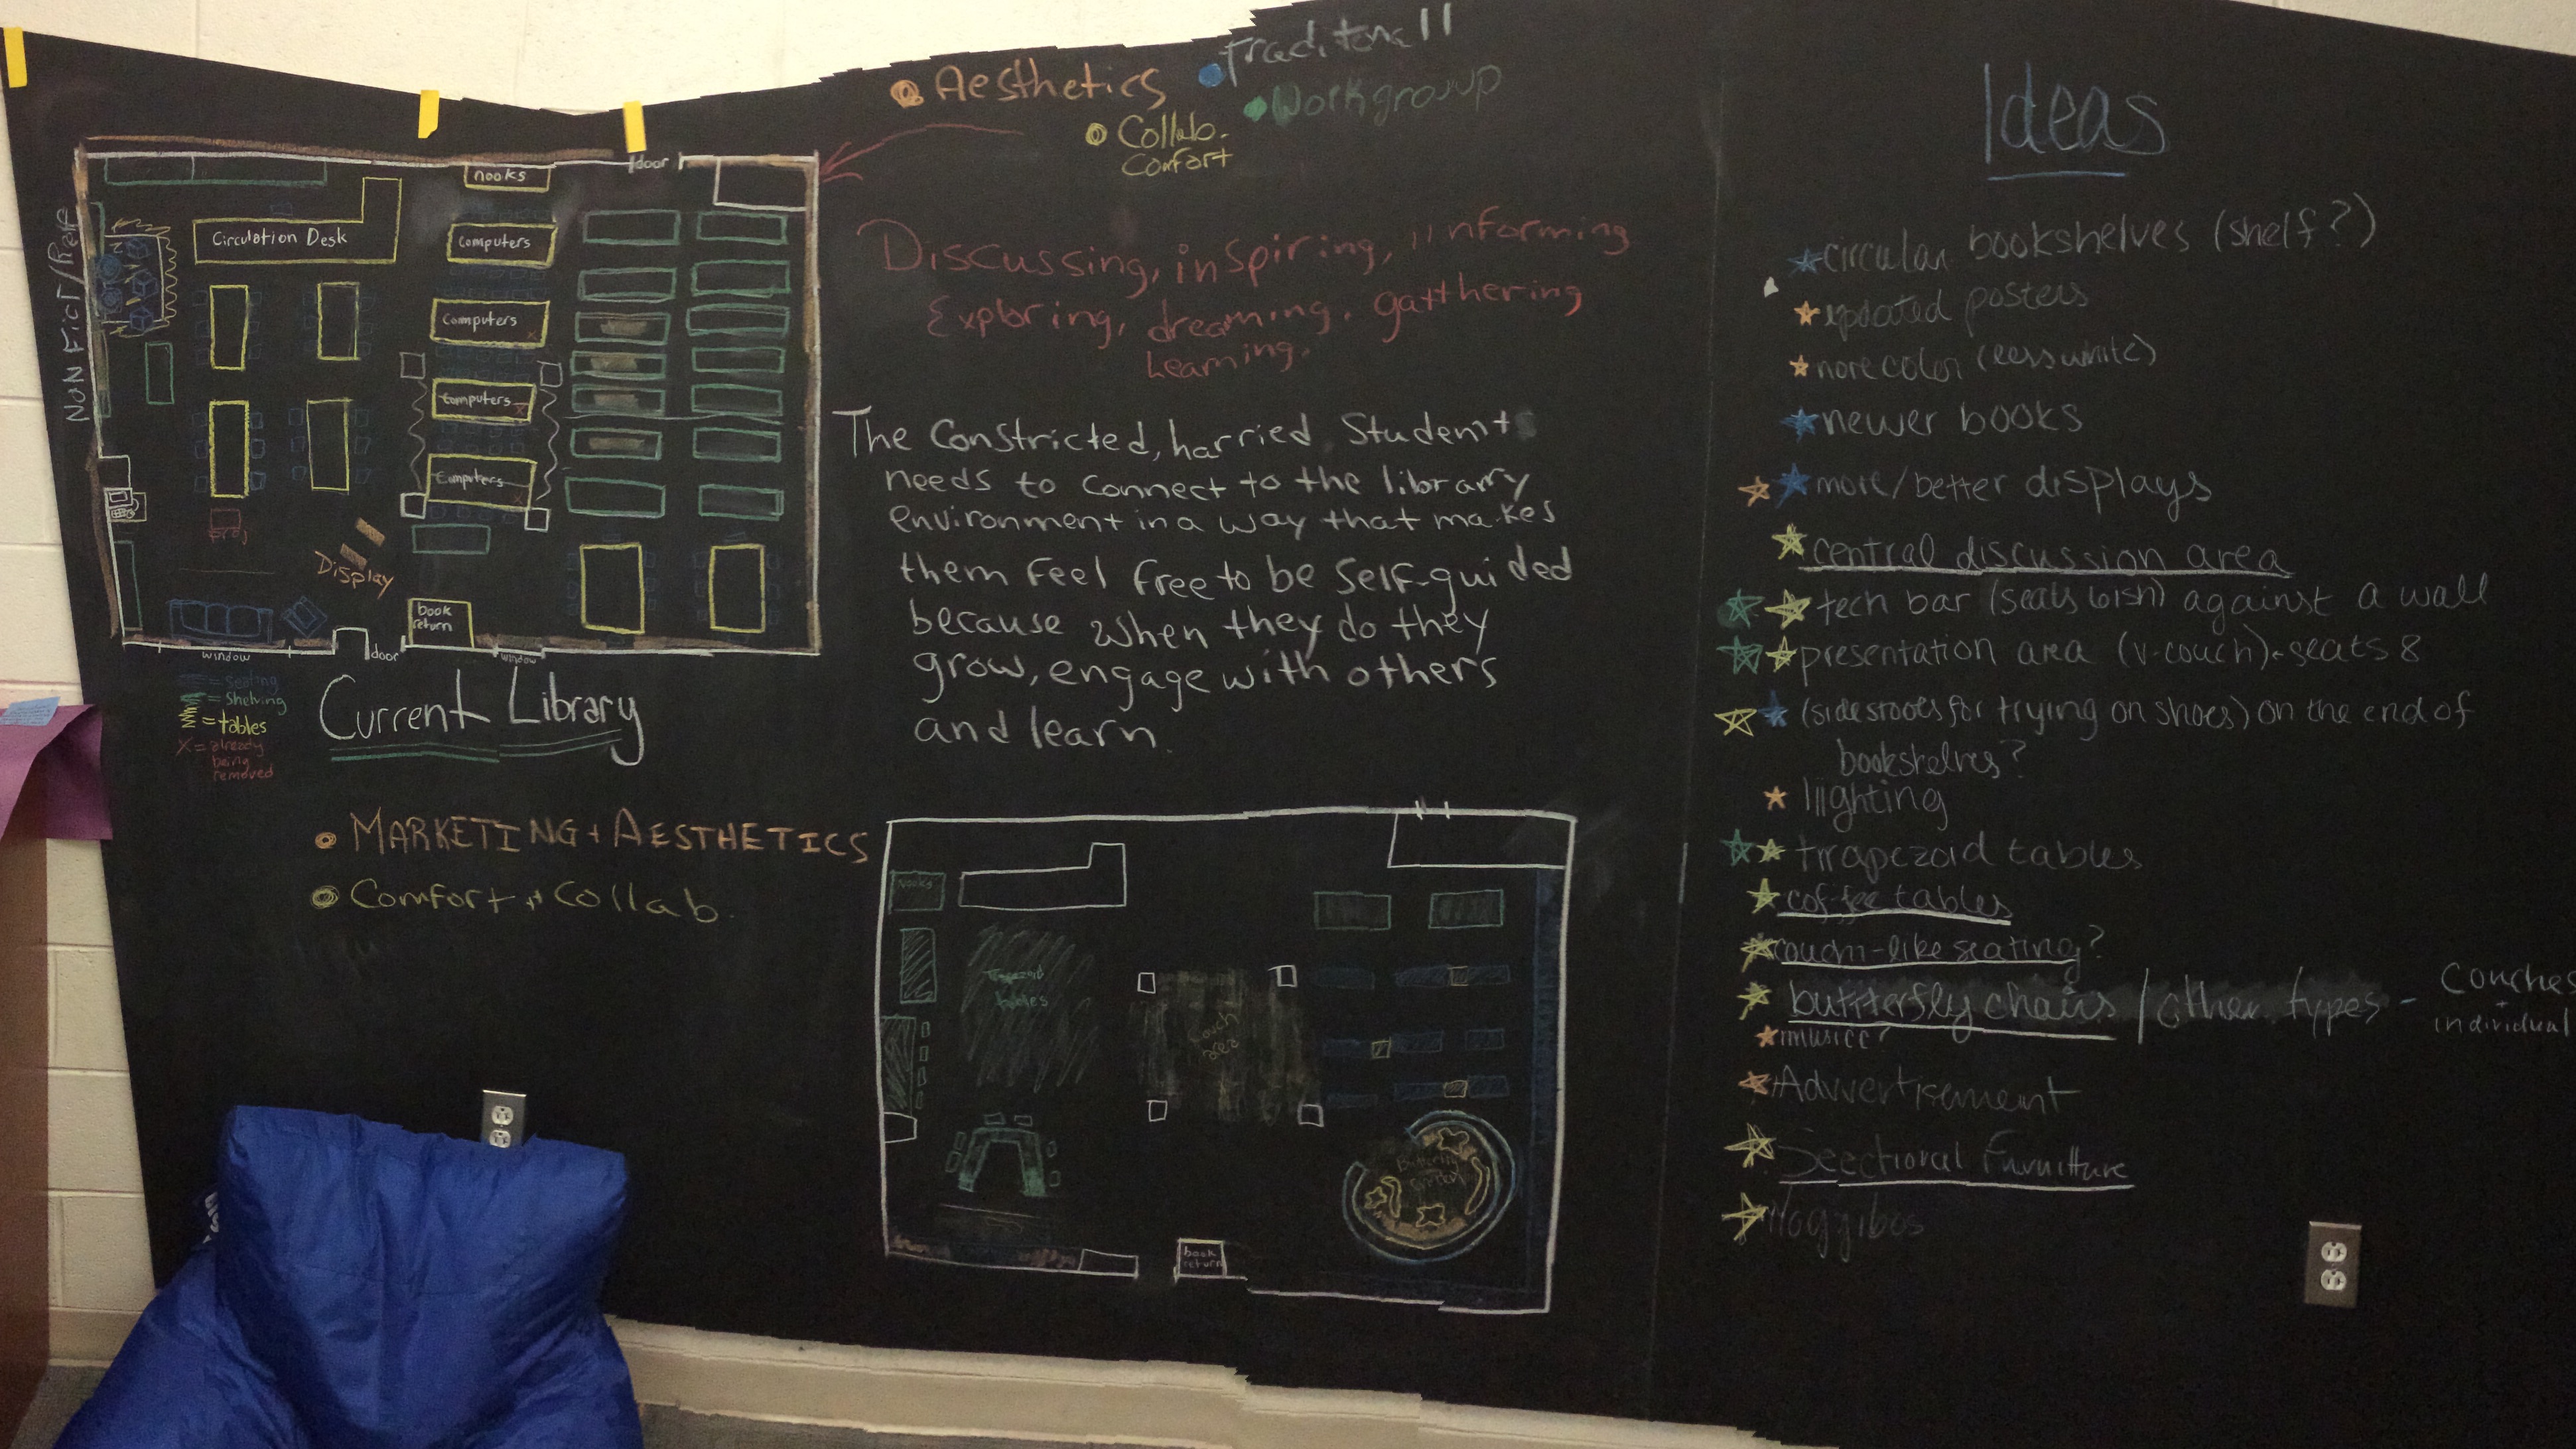 Traditonall
Aesthetics
Workgroup
Collab.
Comfort
door
nooks
NON Fict/Refe
Circulation Desk
Computers
Computers
Computers
Computers
Proj
Display
book
return
window
door
window
= seating
= shelving
= tables
X = already
being
removed
Current Library
MARKETING + AESTHETICS
Comfort + Collab.
Discussing, inspiring, iinforming
Exploring, dreaming, gatthering
Learning.
The Constricted, harried Student
needs to connect to the library
environment in a way that makes
them feel free to be self-guided
because when they do they
grow, engage with others
and learn.
Nooks
Trapezoid
tables
Couch
area
book
return
Ideas
circular bookshelves (shelf?)
updated posters
more color (less white)
newer books
more/better displays
central discussion area
tech bar (seats 6ish) against a wall
presentation area (v-couch) - seats 8
(side stools for trying on shoes) on the end of
bookshelves?
liighting
trrapezoid tables
cof-fee tables
couch-like seating?
buttterfly chairs / other types - Couches
+
individual
musicc?
Advvertisement
Seectional Furnitture
Noggibos